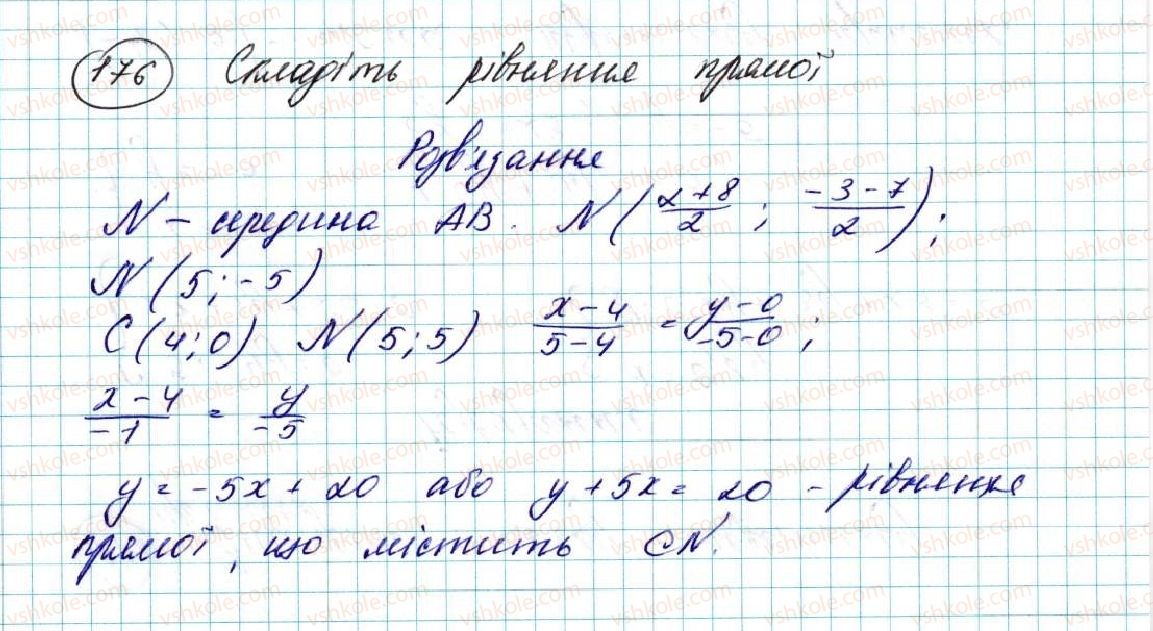 176 Складіть рівняння прямої
Розв'язання
N – середина AB. N (2+8/2 ; -3-7/2);
N (5; -5)
C (4; 0) N (5; 5) x-4/5-4 = y-0/-5-0;
2-4/-1 = y/-5
y = -5x + 20 або y + 5x = 20 - рівняння
прямої, що містить CN.